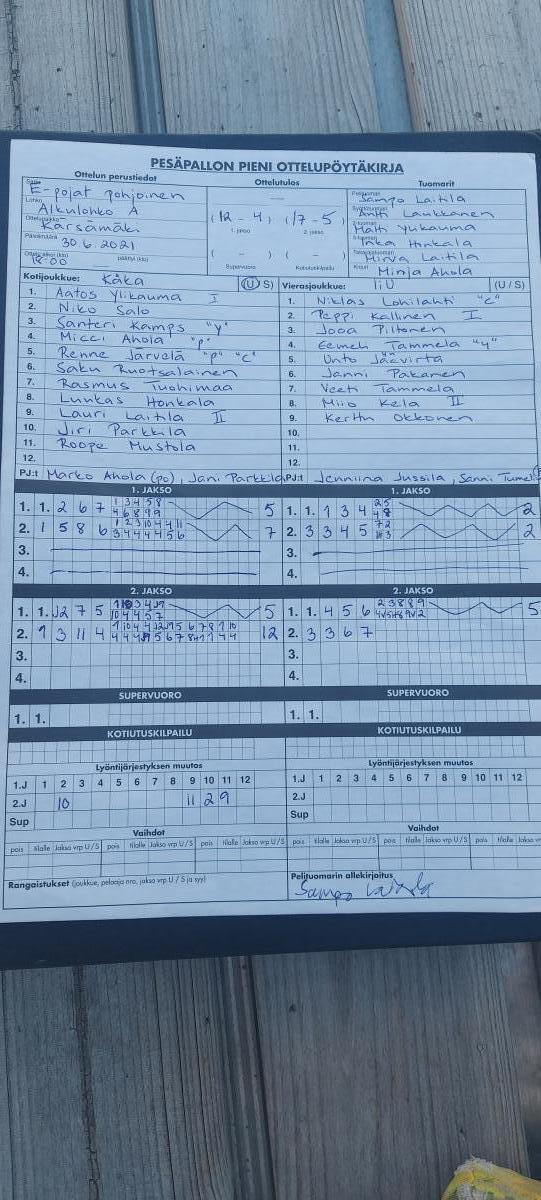 PESÄPALLON PIENI OTTELUPÖYTÄKIRJA
Ottelun perustiedot Ottelutulos Tuomarit
Sarja
E-pojat pohjoinen
Lohko
Alkulohko A
Ottelupaikka
Kärsämäki
Päivämäärä
30.6.2021
18.00 päättyi (klo)
(12 - 4) (17 - 5)
1. jakso 2. jakso
( - ) ( - )
Supervuoro Kotiutuskilpailu
Pelituomari
Sampo Laitila
Syöttötuomari
Antti Laukkanen
2-tuomari
Matti Ylikauma
3-tuomari
Inka Honkala
Takarajatuomari
Minva Laitila
Kirjuri
Minja Ahola
Kotijoukkue: KäKa (U / S)
1. Aatos Ylikauma I
2. Niko Salo
3. Santeri Kamps "y"
4. Micci Ahola "p"
5. Renne Järvelä "p" "c"
6. Saku Ruotsalainen
7. Rasmus Tuohimaa
8. Luukas Honkala
9. Lauri Laitila II
10. Jiri Parkkila
11. Roope Mustola
12.
PJ:t Marko Ahola (po), Jani Parkkila
Vierasjoukkue: IiU (U / S)
1. Niklas Lohilahti "c"
2. Peppi Kallinen I
3. Jooa Piltonen
4. Eemeli Tammela "y"
5. Unto Jäävirta
6. Janni Pakanen
7. Veeti Tammela
8. Miio Kela II
9. Kerttu Okkonen
10.
11.
12.
PJ:t Jenniina Jussila, Sanni
1. JAKSO
1. 1. 2 6 7 1 3 4 5 8 5
4 6 8 9 9
2. 1 5 8 6 1 2 3 10 4 4 11 7
3 4 4 4 4 5 6
3.
4.
1. JAKSO
1. 1. 1 3 4 2 5 2
4 8
2. 3 3 4 5 7 2 2
3.
4.
2. JAKSO
1. 1. 2 7 5 5
10 4 4 5 7
2. 1 3 11 4 12
3.
4.
2. JAKSO
1. 1. 4 5 6 2 3 8 8 9 5
2. 3 3 6 7
3.
4.
SUPERVUORO
1. 1.
SUPERVUORO
1. 1.
KOTIUTUSKILPAILU
KOTIUTUSKILPAILU
Lyöntijärjestyksen muutos
1.J 1 2 3 4 5 6 7 8 9 10 11 12
2.J 10 11 2 9
Sup
Lyöntijärjestyksen muutos
1.J 1 2 3 4 5 6 7 8 9 10 11 12
2.J
Sup
Vaihdot
pois tilalle Jakso vrp U / S pois tilalle Jakso vrp U / S pois tilalle Jakso vrp U / S
Vaihdot
pois tilalle Jakso vrp U / S pois tilalle Jakso vrp U / S pois tilalle Jakso vrp
Rangaistukset (joukkue, pelaaja nro, jakso vrp U / S ja syy)
Pelituomarin allekirjoitus
Sampo Laitila